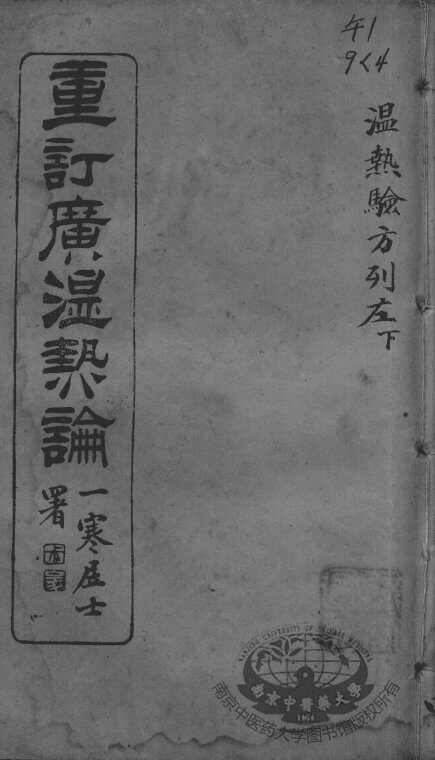 午1
9く4
温熱驗方列左下
重訂廣温熱論
一寒居士
署
NANJING UNIVERSITY OF CHINESE MEDICINE
南京中醫藥大學
1954
南京中医药大学图书馆版权所有